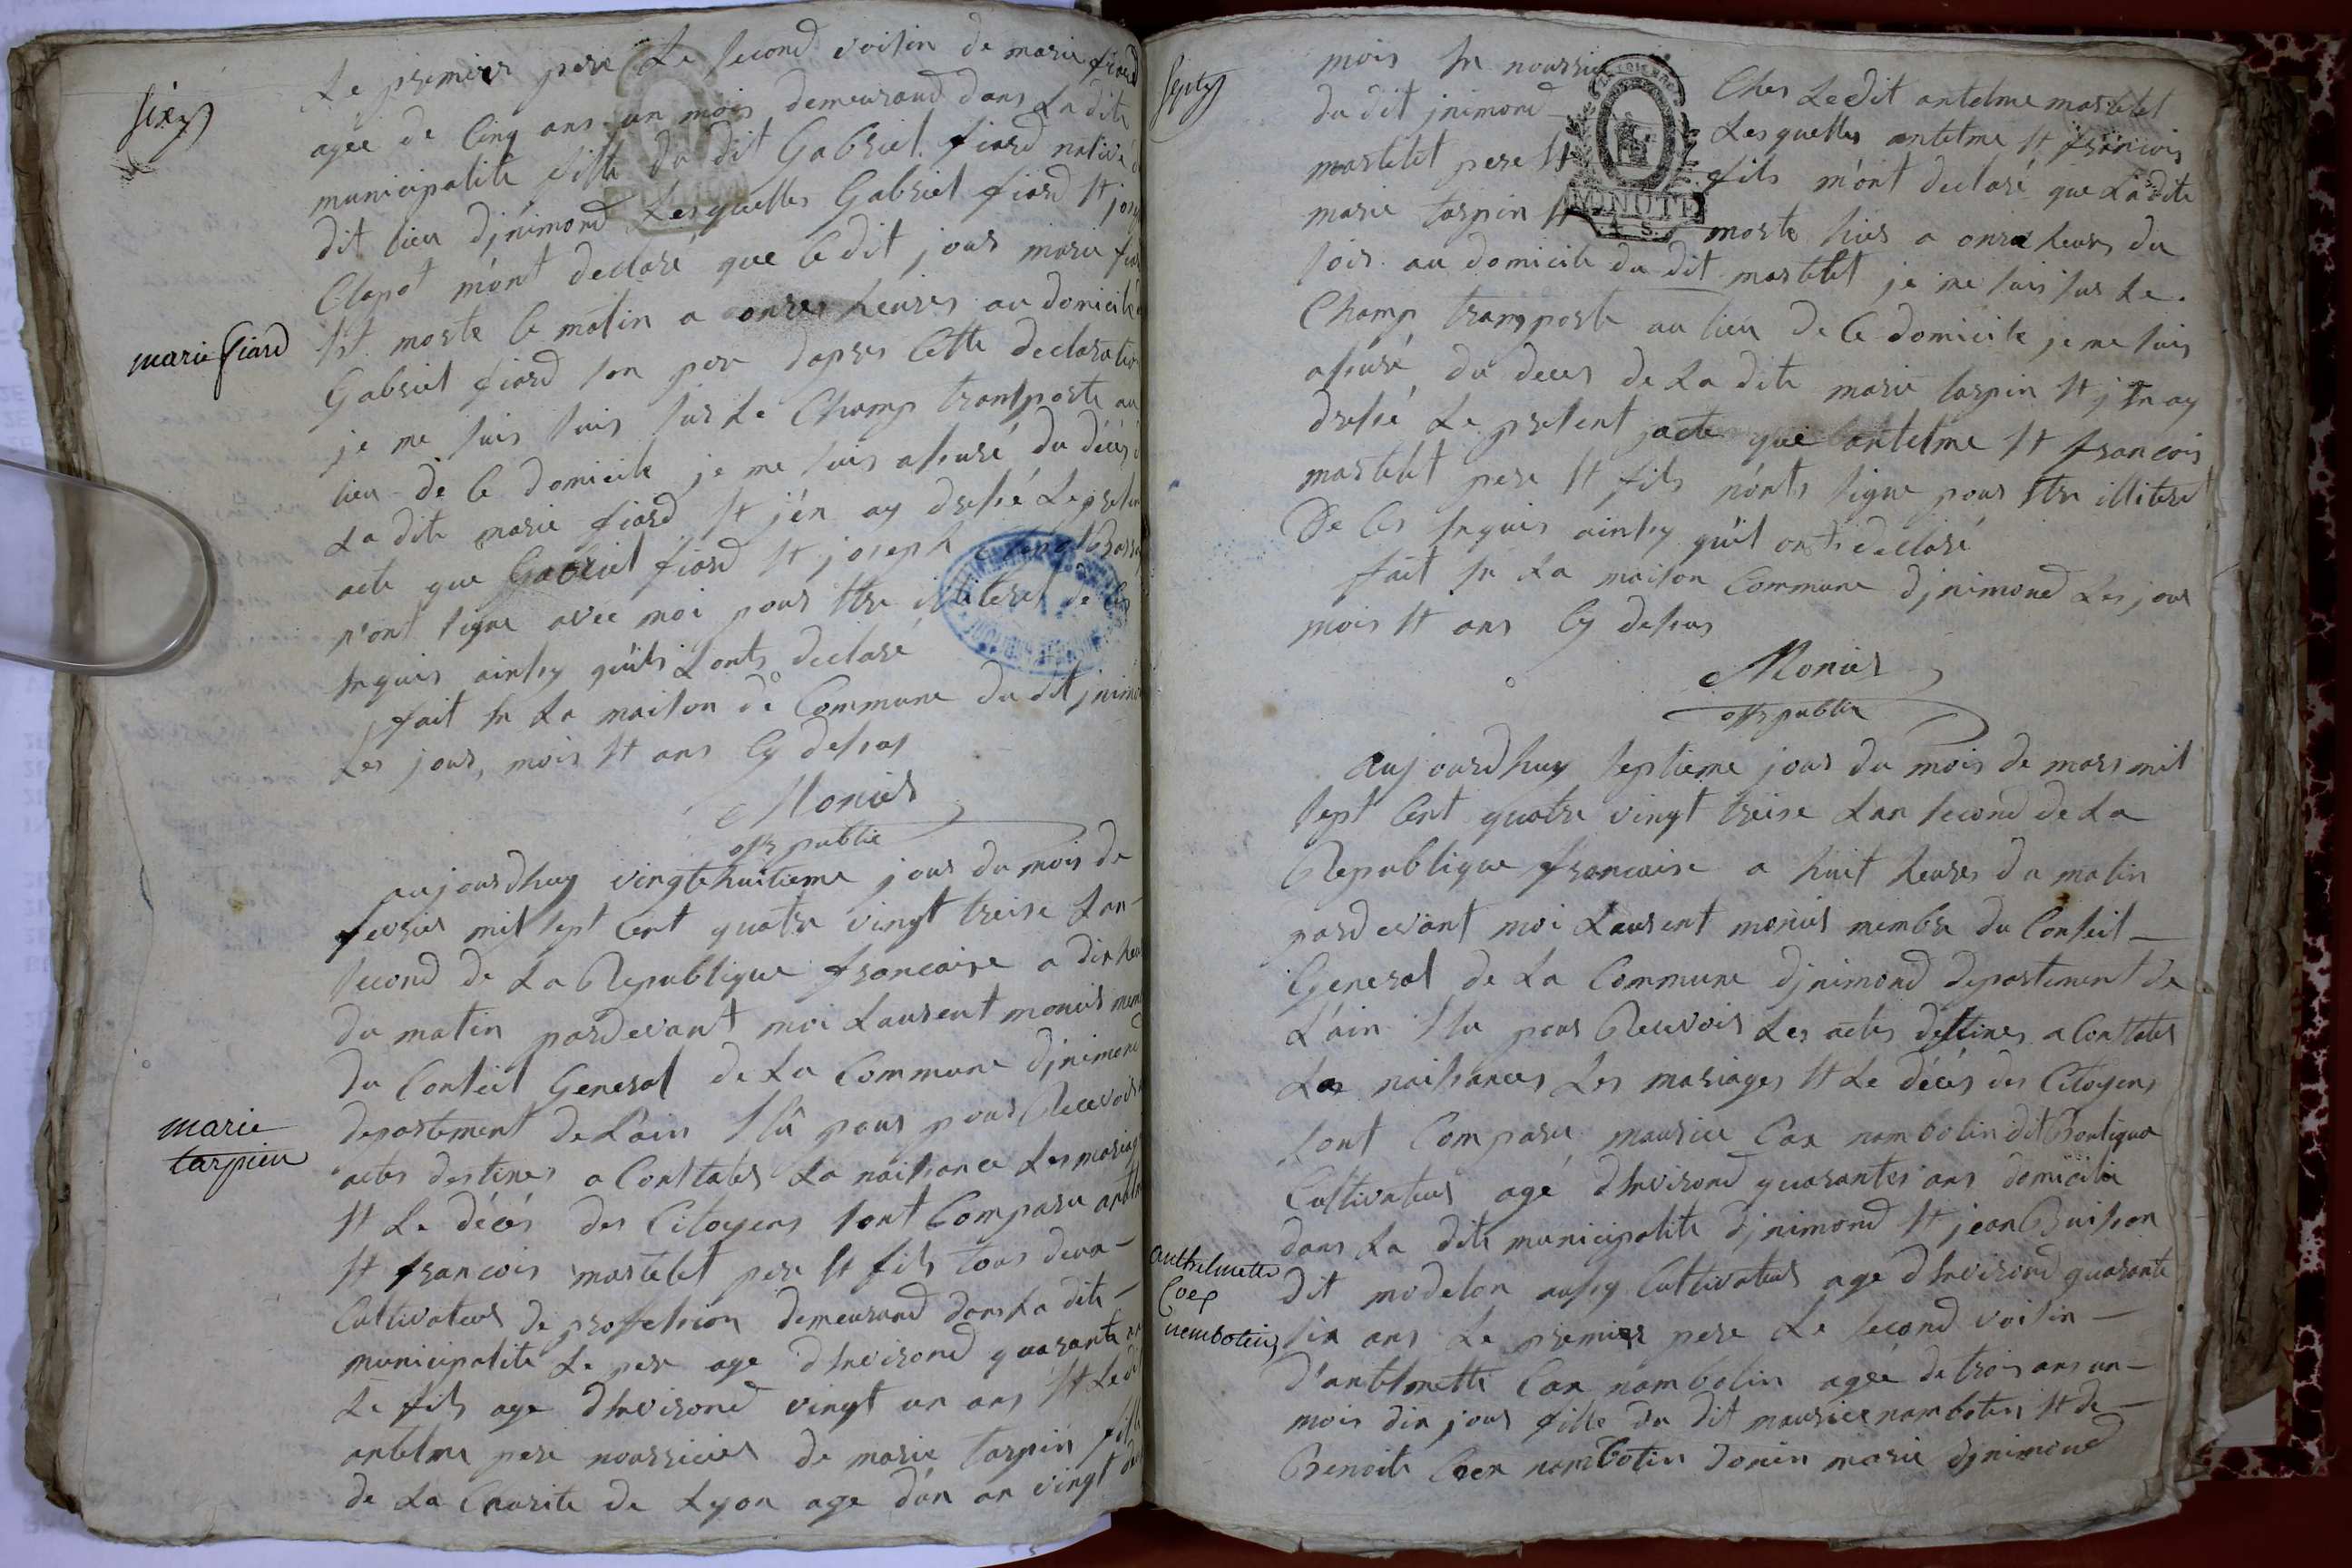 six
Le premier pere Le second voisin de marie fiard
agée de Cinq ans un mois demeurand dans La dite
municipalite fille du dit Gabriel fiard native
dit lieu djnimond Lesquelles Gabriel fiard et jos
Clapot m'ont declaré que Ce dit jour marie fiar
marie fiard
est morte Ce matin a onze heures au domicile
Gabriel fiard son pere dapres Cette declaration
je me suis suis sur Le Champ transporte au
lieu de Ce domicile je me suis assuré du décés
La dite marie fiard et j'en ay dressé Le presen
acte que Gabriel fiard et joseph
n'ont signe avec moi pour Etre illiteres de Ces
Enquis ainsy quils Lonts declaré
fait En La maison de Commune du dit jnimo
Les jour, mois et ans Cy dessus
Monier
offr public
aujourdhuy vingtehuitieme jour du mois de
fevrier mil sept Cent quatre vingt treise Lan
second de La Republique francaise a dix heu
du matin pardevant moi Laurent monier mem
du Conseil General de La Commune djnimond
marie
tarpien
departement de Lain Elû pour pour Recevoir
actes destines a Constater La naissance Les mariag
et Le décés des Citoyens sont Comparu antel
et francois martelet pere et fils tous deux
Cultivateur de profession demeurand dans La dite
municipalite Le pere age dEnvirond quarante
Le fils age dEnvirond vingt un ans et Le di
antelme pere nourricier de marie tarpin fille
de La Charite de Lyon age d'un an vingt
septy
mois En nourrice Ches Le dit antelme martelet
du dit jnimond Lesquelles antelme et francois
martelet pere et fils m'ont declaré que La dite
marie tarpin et morte hier a onze heures du
MINUTE
soir au domicile du dit martelet je me suis sur Le
Champ transporte au lieu de Ce domicile je me suis
assuré du deces de La dite marie tarpin et jEn ay
dressé Le present acte que antelme et francois
martelet pere et fils n'onts signe pour Etre illiteret
De Ces Enquis ainsy quil onts declaré
fait En La maison Commune djnimond Les jour
mois et ans Cy dessus
Monier
offr public
Aujourdhuy septieme jour du mois de mars mil
sept Cent quatre vingt treise Lan second de La
Republique francaise a huit heures du matin
pardevant moi Laurent monier membre du Conseil
General de La Commune djnimond departement de
L'ain Elu pour Recevoir Les actes destines a Constater
Les naissances Les mariages et Le décés des Citoyens
sont Comparu maurice Cax nambotin dit Bontiqua
Cultivateur agé dEnvirond quarantes ans domicilie
dans La dite municipalite djnimond et jean Buisson
anthelmette
Coex
nambotin
dit modelon aussy Cultivateur age dEnvirond quarante
six ans Le premier pere Le second voisin
d'antelmette Cax nambotin agée de trois ans un
mois dix jour fille du dit maurice nambotin et de
Benoite Coex nambotin donin marie djnimond